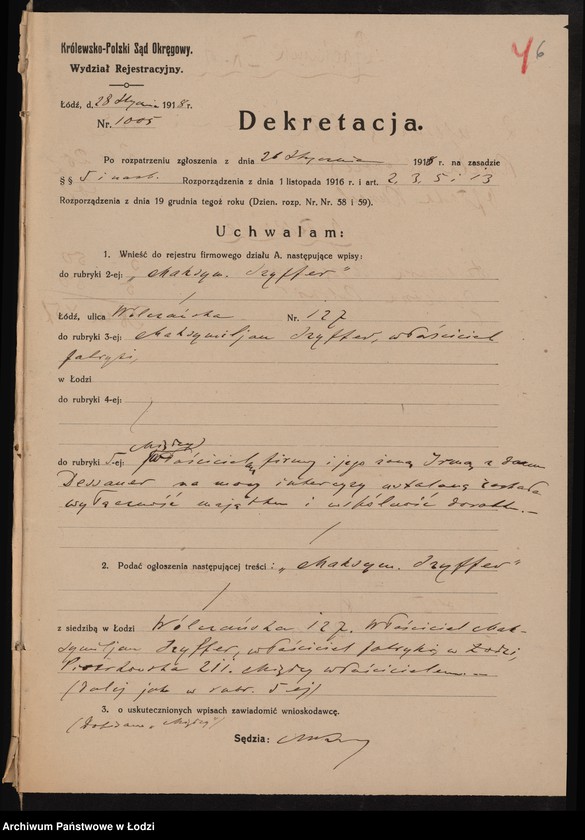 Królewsko-Polski Sąd Okręgowy.
Wydział Rejestracyjny.
4 6
Łódź, d. 28 Stycznia 1918 r.
Nr. 1005
Dekretacja.
Po rozpatrzeniu zgłoszenia z dnia 26 Stycznia 1918 r. na zasadzie
§ § 5 i nast. Rozporządzenia z dnia 1 listopada 1916 r. i art. 2, 3, 5 i 13
Rozporządzenia z dnia 19 grudnia tegoż roku (Dzien. rozp. Nr. Nr. 58 i 59).
Uchwalam:
1. Wnieść do rejestru firmowego działu A. następujące wpisy:
do rubryki 2-ej: „Maksym. Szyffer"
Łódź, ulica Wólczańska Nr. 127
do rubryki 3-ej: Maksymiljan Szyffer, właściciel
fabryki,
w Łodzi
do rubryki 4-ej:
Między
do rubryki 5-ej: właścicielem firmy i jego żoną Irmą z domu
Dessauer na mocy intercyzy ustaloną została
wyłączność majątku i wspólność dorobk.—
2. Podać ogłoszenia następującej treści: „Maksym. Szyffer"
z siedzibą w Łodzi Wólczańska 127. Właściciel Mak-
symiljan Szyffer, właściciel fabryki w Łodzi,
Piotrkowska 211. Między właścicielem.—
(Dalej jak w rubr. 5 ej)
3. o uskutecznionych wpisach zawiadomić wnioskodawcę.
(Dopisano „Między")
Sędzia:
Archiwum Państwowe w Łodzi